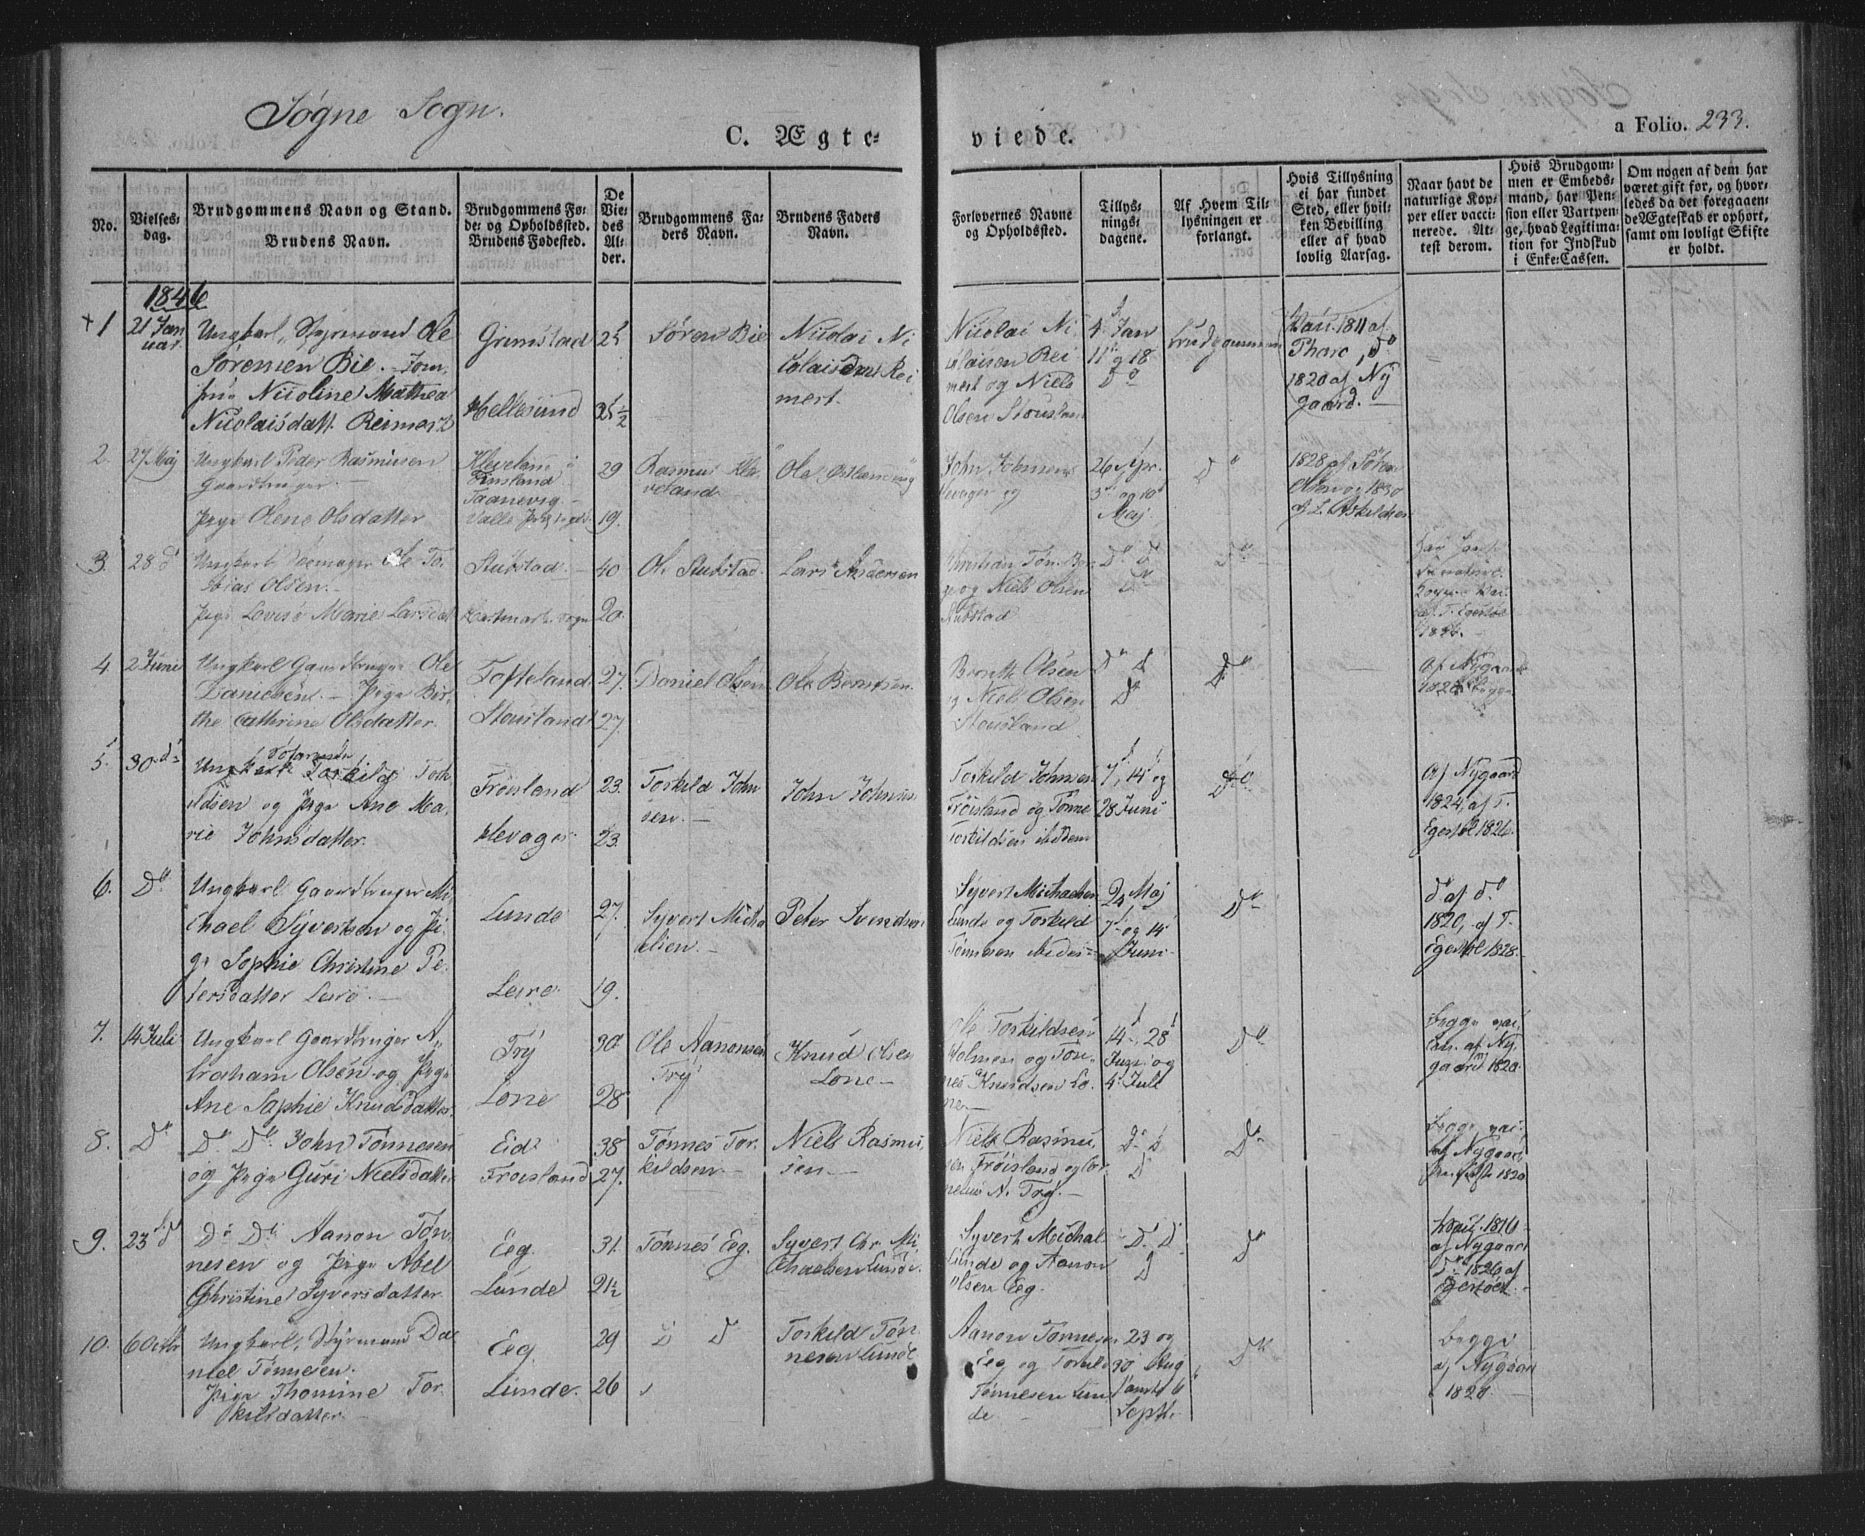 Søgne Sogn.
C. Ægte-
viede.
a Folio. 233.
No.
Vielses-
dag.
Brudgommens Navn og Stand.
Brudens Navn.
Brudgommens Fø-
de- og Opholdssted.
Brudens Fødested.
De
Vie-
des
Al-
der.
Brudgommens Fa-
ders Navn.
Brudens Faders
Navn.
Forlovernes Navne
og Opholdssted.
Tillys-
nings-
dagene.
Af Hvem Til-
lysningen er
forlangt.
Hvis Tillysning
ei har fundet
Sted, eller hvil-
ken Bevilling
eller af hvad
lovlig Aarsag.
Naar havt de
naturlige Kop-
per eller vacci-
nerede. At-
test derom.
Hvis Brudgom-
men er Embeds-
mand, har Pen-
sion eller Vartpen-
ge, hvad Legitima-
tion for Indskud
i Enke-Cassen.
Om nogen af dem har
været gift før, og hvor-
ledes da det foregaaen-
de Ægteskab er ophørt,
samt om lovligt Skifte
er holdt.
1846
1
21 Jan
uar.
Ungkarl, Styrmand Ole
Sørensen Bie. Jom-
fru Nicoline Mathea
Nicolaisdatt. Reimert
Grimstad
Hellesund
25
25½
Søren Bie
Nicolai Ni
colaisen Rei
mert.
Nicolai Ni
colaisen Rei
mert og Niels
Olsen Stousland
4 Jan
11 og 18
Do
Brudgommen
Vac. 1811 af
Tharo, Do
1820 af Ny
gaard.
2.
27 Maj
Ungkarl Peder Rasmussen
Gaardbruger.
Pige Olene Olsdatter
Kleveland i
Finsland
Taanevig
Valle Præstegd.
29
19.
Rasmus Kle
veland
Ole
John Johnsen
Hevager og
26 Apr.
3 og 10
Maj
Do
1828 af Søren
Olsen og 1830
af L. Askildsen
3.
28 d
Ungkarl Ole To-
bias Olsen.
Pige Lovise Marie Larsdat
Stubstad.
Hartmark Sogn
40
20.
Ole Stubstad.
Lars Andersen
Christian
og Niels Olsen
Stubstad
Do d
D
Do
4
2 Juni
Ungkarl Gaardbruger Ole
Danielsen. Pige Bir-
the Cathrine Olsdatter.
Tofteland
Stousland
27.
27
Daniel Olsen
Ole Berntsen
Berntt Olsen
og Niels Olsen
Stousland
Do d
Do
Do
Af Nygaard
1820 begge
5.
30 d
Ungkarl Torkild Tork
ildsen og Pige Ane Ma-
rie Johnsdatter.
Frøisland
Hevager
23.
23.
Torkild John
sen.
John Johnsen
Torkild Johnsen
Frøisland og Tønne
Torkildsen ibidem
7, 14 og
28 Juni
Do
Af Nygaard
1824, af T.
Egerbøl 1826.
6.
Do
Ungkarl Gaardbruger Mi-
chael Syvertsen og Pi-
ge Sophie Christine Pe-
tersdatter Leirø.
Lunde
Leirø
27.
19.
Syvert Micha
elsen
Peter Svendsen
Syvert Michaelsen
Lunde og Torkild
Tønnesen
24 Maj
7 og 14
Juni
Do
do af do
1820, af T.
Egerbøl 1828.
7.
14 Juli
Ungkarl Gaardbruger A-
braham Olsen og Pige
Ane Sophie Knudsdatter
Try
Lone
30
28
Ole Aanonsen
Try
Knud Olsen
Lone
Ole Torkildsen
Holmen og Tøn-
nes Knudsen Lo-
ne
14, 28
Juni og
4 Juli
Do
begge vac-
cin. af Ny-
gaard 1820
8.
Do
Do Do John Tønnesen
og Pige Guri Nielsdatter
Eid
Frøisland
38
27.
Tønnes Tor-
kildsen
Niels Rasmus-
sen
Niels Rasmus-
sen Frøisland og Cor-
nelius N. Try.
Do d
D
Do
begge vac-
af Nygaard
1820
9.
23 d
Do Do Aanon Tøn-
nesen og Pige Abel
Christine Syversdatter
Eeg.
Lunde
31.
21½
Tønnes Eeg.
Syvert Chr. Mi
chaelsen Lunde.
Syvert Michal
Lunde og Aanon
Olsen Eeg.
Do D
D
Do
Vac. 1816
af Nygaard
Do 1826 af
Egerbøl.
10.
6 Octbr
Ungkarl, Styrmand Da
niel Tønnesen.
Pige Thomine Tor-
kildsdatter.
Eeg.
Lunde.
29
26
D Do
Torkild Tøn-
nesen Lunde
Aanon Tønnesen
Eeg og Torkild
Tønnesen Lun-
de
23 og
30 Aug
samt 6
Septbr.
Do
begge
af Nygaard
1820